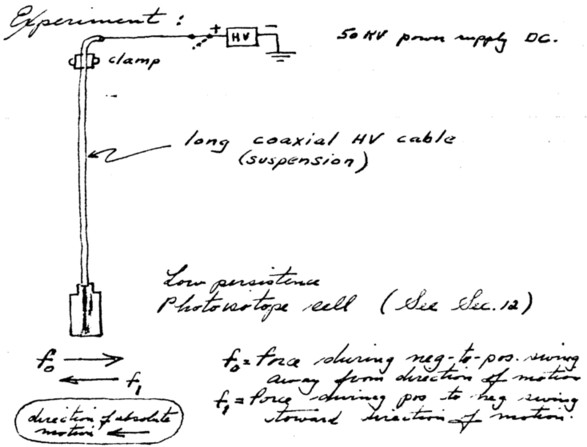 Experiment:
+ HV −
50 KV power supply DC.
clamp
long coaxial HV cable
(suspension)
Low persistence
Photoisotope cell (See Sec. 12)
f₀ = Force during neg-to-pos. swing
away from direction of motion
f₁ = Force during pos to neg swing
toward direction of motion.
f₀
f₁
direction of absolute
motion